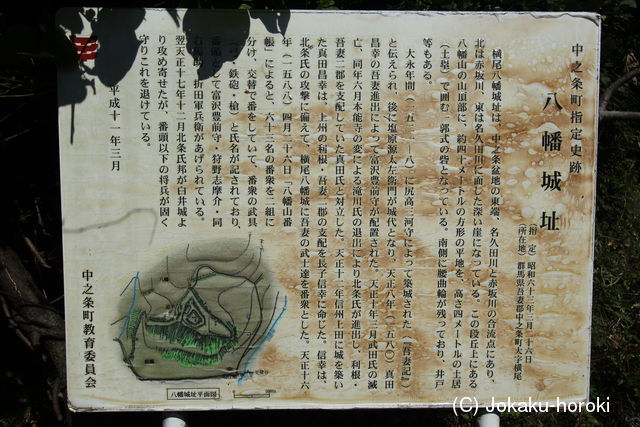 中之条町指定史跡
八幡城址
（指定）昭和六十三年三月二十六日
（所在地）群馬県吾妻郡中之条町大字横尾
横尾八幡城址は、中之条盆地の東端、名久田川と赤坂川の合流点にあり、
北は赤坂川、東は名久田川に面した深い崖になっている。この段丘上にある
八幡山の山頂部に、約四十メートルの方形の平地を、高さ四メートルの土居
（土塁）で囲む一郭式の砦となっている。南側に腰曲輪が残っており、井戸
等もある。
大永年間（一五二一—八）に尻高三河守によって築城された（『吾妻記』）
と伝えられ、後に塩原源太左衛門が城代となり、天正八年（一五八〇）真田
昌幸の吾妻進出によって富沢豊前守が配置された。天正十年三月武田氏の滅
亡、同年六月本能寺の変による滝川氏の退出により北条氏が進出し、利根・
吾妻二郡を支配していた真田氏と対立した。天正十一年信州上田に城を築い
た真田昌幸は、上州の利根・吾妻二郡の支配を長子信幸に命じた。信幸は、
北条氏の攻撃に備えて、横尾八幡城に吾妻の武士達を番衆とした。天正十六
年（一五八八）四月二十六日「八幡山番
帳」によると、六十三名の番衆を二組に
分け、交替で番をしていて、番衆の武具
・鉄砲・槍）と氏名が記されており、
番頭として富沢豊前守・狩野志摩介・同
折田軍兵衛があげられている。
翌天正十七年十二月北条氏邦が白井城よ
り攻め寄せたが、番頭以下の将兵が固く
守りこれを退けている。
平成十一年三月
中之条町教育委員会
八幡城址平面図
(C) Jokaku-horoki